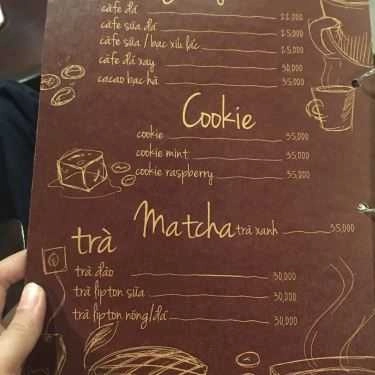 cafe đá 22,000
cafe sữa đá 25,000
cafe sữa / bạc xỉu lắc 25,000
cafe đá xay 30,000
cacao bạc hà 35,000
Cookie
cookie 35,000
cookie mint 35,000
cookie raspberry 35,000
Matcha trà xanh 35,000
trà
trà đào 30,000
trà lipton sữa 30,000
trà lipton nóng/đá 30,000